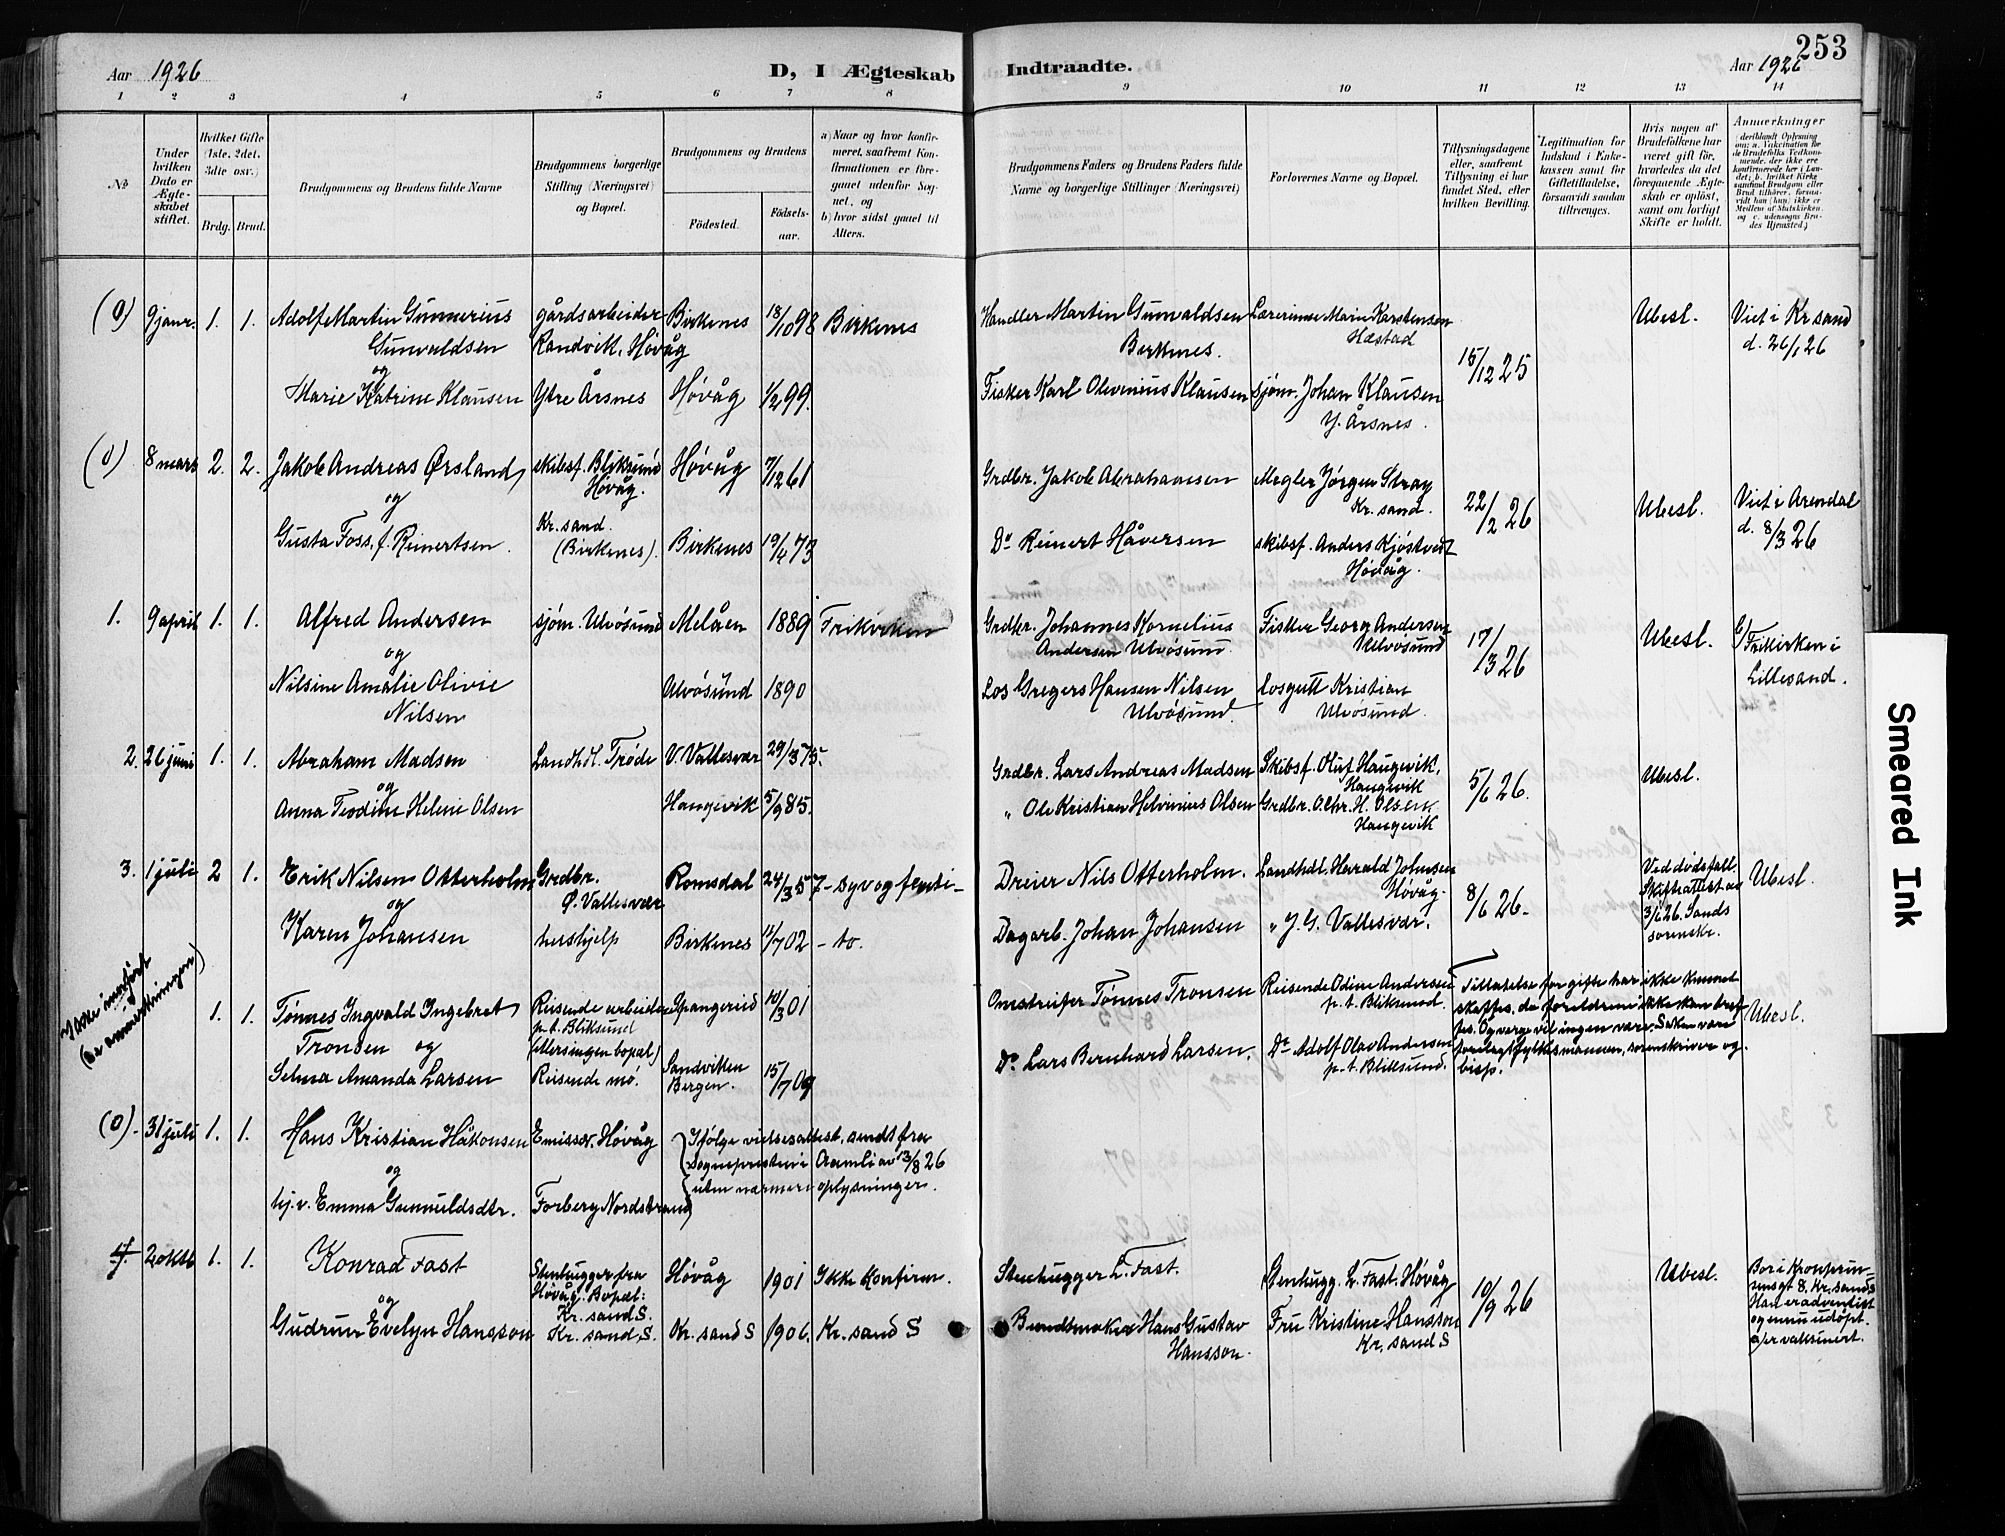 253
Aar 1926
D, I Ægteskab Indtraadte.
Aar 1926
1 2 3 4 5 6 7 8 9 10 11 12 13 14
No
Under hvilken Dato er Ægteskabet stiftet.
Hvilket Gifte (1ste, 2det, 3die osv.)
Brdg. Brud.
Brudgommens og Brudens fulde Navne
Brudgommens borgerlige Stilling (Næringsvei) og Bopæl.
Brudgommens og Brudens
Födested.
Födselsaar.
a) Naar og hvor konfirmeret, saafremt Konfirmationen er foregaaet udenfor Sognet, og
b) hvor sidst gaaet til Alters.
Brudgommens Faders og Brudens Faders fulde Navne og borgerlige Stillinger (Næringsvei)
Forlovernes Navne og Bopæl.
Tillysningsdagene eller, saafremt Tillysning ei har fundet Sted, efter hvilken Bevilling.
Legitimation for Indskud i Enkekassen samt for Giftetilladelse, forsaavidt saadan tiltrænges.
Hvis nogen af Brudefolkene har været gift för, hvorledes da det foregaaende Ægteskab er oplöst, samt om lovligt Skifte er holdt.
Anmærkninger (deriblandt Oplysning om: a. Vakcination for de Brudefolks Vedkommende, der ikke ere konfirmerede her i Landet; b. hvilket Kirkesamfund Brudgom eller Brud tilhører, forsaavidt han (hun) ikke er Medlem af Statskirken, og c. udensogns Brudes Hjemsted.)
(0) 9 janr. 1. 1. Adolf Martin Gunnerius gårdsarbeider Birkenes 18/10 98 Birkenes Handler Martin Gunvaldsen Lærerinne Marie Karstensen Ubesl. Viet i Kr.sand
Gunvaldsen Randvik, Høvåg Birkenes. Hæstad 15/12 25 d. 26/1 26
og
Marie Katrine Klausen Ytre Årsnes Høvåg 1/2 99. Fisker Karl Olevinius Klausen sjøm. Johan Klausen
Y. Årsnes.
(0) 8 mars 2. 2. Jakob Andreas Ørsland skibsf. Bliksund Høvåg 7/12 61 Grdbr. Jakob Abrahamsen Megler Jørgen Stray 22/2 26 Ubesl. Viet i Arendal
og Høvåg. Kr.sand. d. 8/3 26
Gusta Foss, f. Reinertsen. Kr.sand. (Birkenes). Birkenes 19/4 73 Do Reinert Håversen skibsf. Anders Kjøstvedt
Høvåg.
1. 9 april 1. 1. Alfred Andersen sjøm. Ulvøsund Meløen 1889 Frikirken Grdbr. Johannes Kornelius Fisker Georg Andersen 17/3 26 Ubesl. Frikirken i
og Andersen Ulvøsund Ulvøsund Lillesand.
Nilsine Amalie Olivie Ulvøsund 1890 Los Gregers Hansen Nilsen losgutt Kristian
Nilsen Ulvøsund. Ulvøsund.
2. 26 juni 1. 1. Abraham Madsen Landh.dl. Trøde V. Vallesvær 29/3 75. Grdbr. Lars Andreas Madsen Skibsf. Oluf Haugevik, 5/6 26. Ubesl.
og Haugevik
Anna Teodine Helene Olsen Haugevik 5/9 85. " Ole Kristian Helvinius Olsen Grdbr. O. Chr. H. Olsen
Haugevik
3. 1 juli 2 1. Erik Nilsen Otterholm Grdbr. Romsdal 24/3 57 - syv og femti - Dreier Nils Otterholm. Landhdl. Harald Johnsen 8/6 26. Ved dødsfall. Ubesl.
og Ø. Vallesvær Høvåg. Skifteattest av
Karen Johansen hushjelp Birkenes 11/7 02 - to. Dagarb. Johan Johansen " J. G. Vallesvær. 3/6 26. Sands sorenskr.
Ikke innført (se anmerkningen)
1. 1. Tønnes Ingvald Ingebret Reisende arbeider Spangereid 10/3 01 Omstreifer Tønnes Tronsen Reisende Odine Andersen Tillatelse for gifte har ikke kunnet Ubesl.
Tronsen og p.t. Bliksund p.t. Bliksund. skaffes, da foreldrene ikke kan treffes. Og verge vil ingen være. Saken være
(ellers ingen bopæl) Do Lars Bernhard Larsen. Do Adolf Olav Andersen forelagt fylkesmannen, sorenskriver og
Selma Amanda Larsen Reisende mø. Sandviken Bergen. 15/7 09 p.t. Bliksund. bisp.
(0) - 31 juli 1. 1. Hans Kristian Håkonsen Emissær, Høvåg Ifølge vielsesattest, sendt fra
og Sogneprestens i Aamli av 13/8 26
hj.v. Emma Gunnuldsdtr. Forberg Nordstrand uten nærmere oplysninger.
4. 2 oktb 1. 1. Konrad Fast Stenhugger fra Høvåg 1901 Ikke konfirm. Stenhugger L. Fast. Stenhugg. L. Fast. Høvåg 10/9 26 Ubesl. Bor i Kronprinsensgt 8. Kr.sand S
og Høvåg. Bopæl: Kr.sand S. Han er adventist
Gudrun Evelyn Hansson Kr.sand S. Kr.sand S 1906. Kr.sand S Buntmaker Hans Gustav Fru Kristine Hansson og ennu udøpt.
Hansson. Kr.sand S a/ er vaksinert.
Smeared Ink